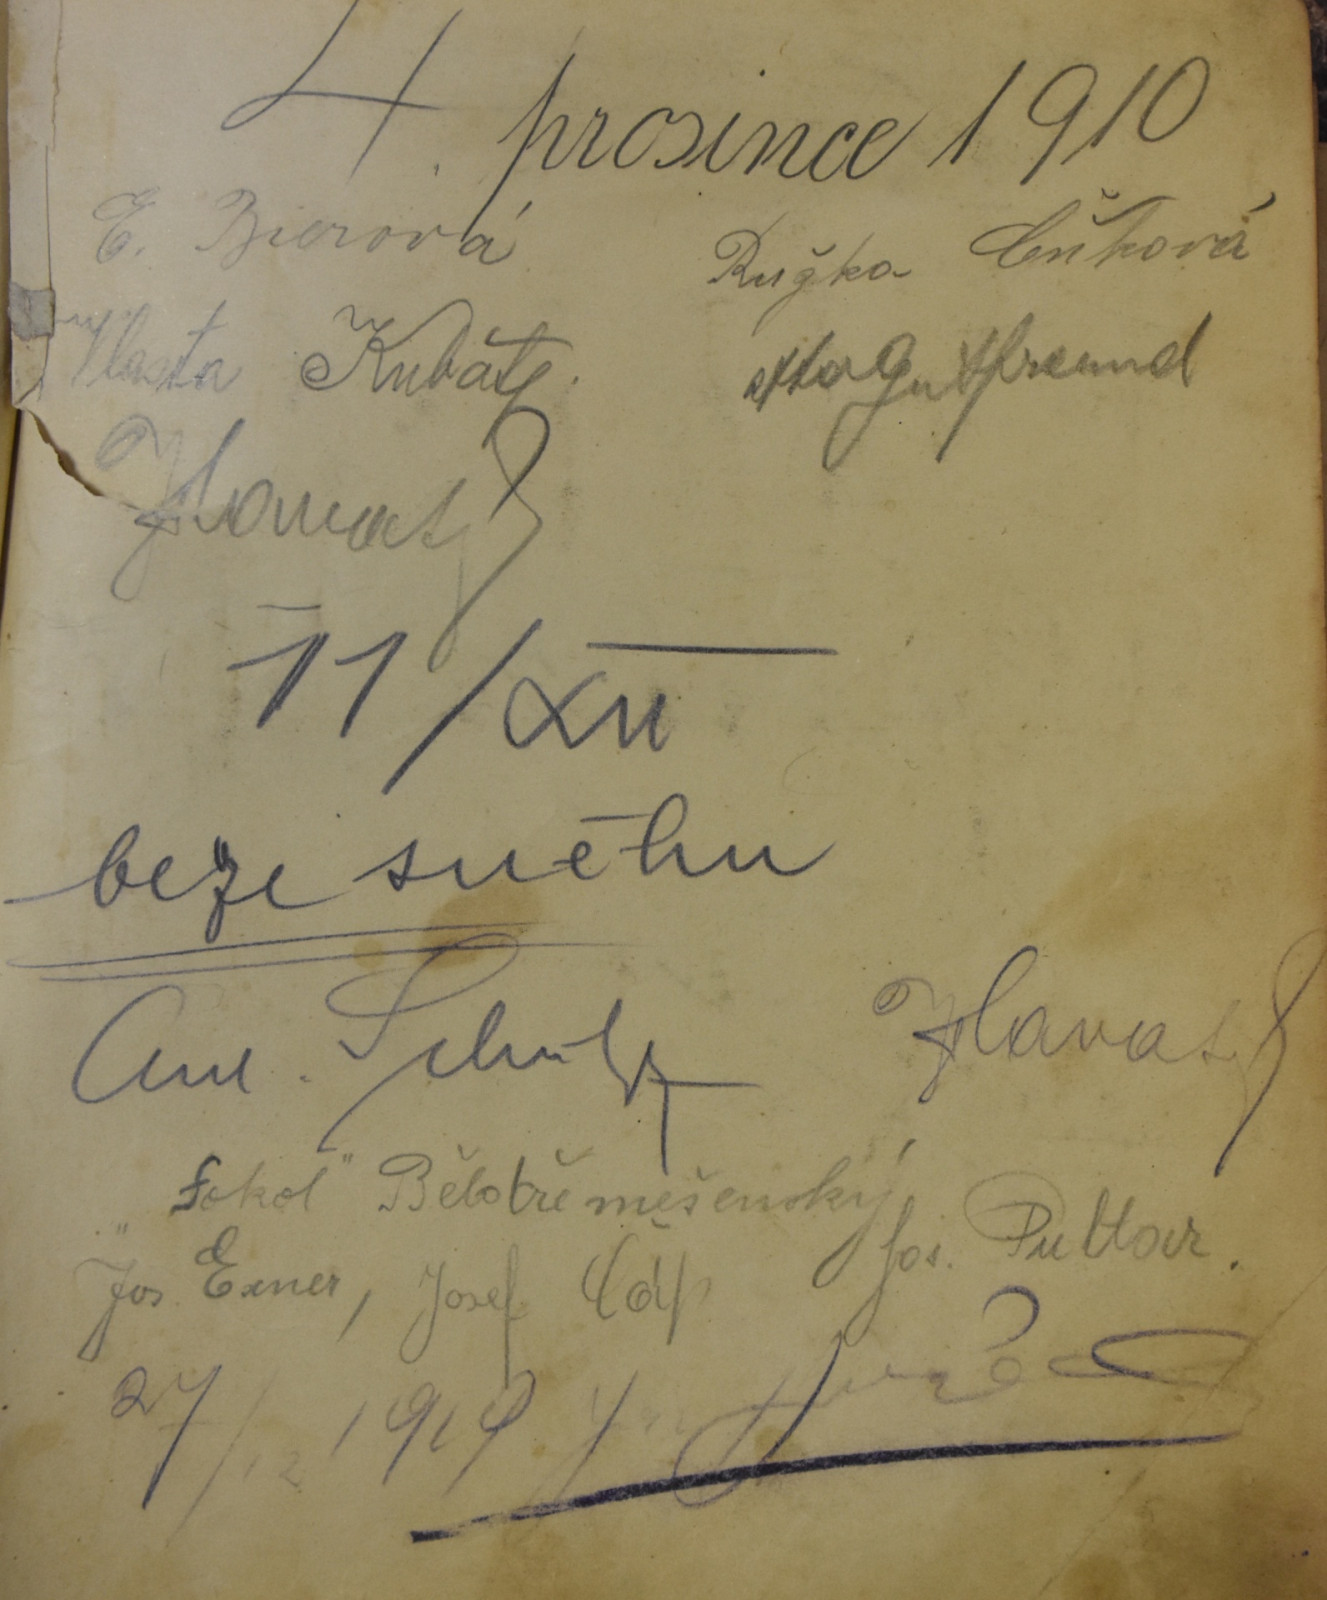 4. prosince 1910
E. Bierová Ružka Čušková
Vlasta Kubát. Otto Gutfreund
Hlavatý
11/XII
beze sněhu
Ant. Schulz Hlavatý
"Sokol" Bělotřemešenský
Jos. Exner, Josef Čáp Jos. Puttar.
27/12 1910